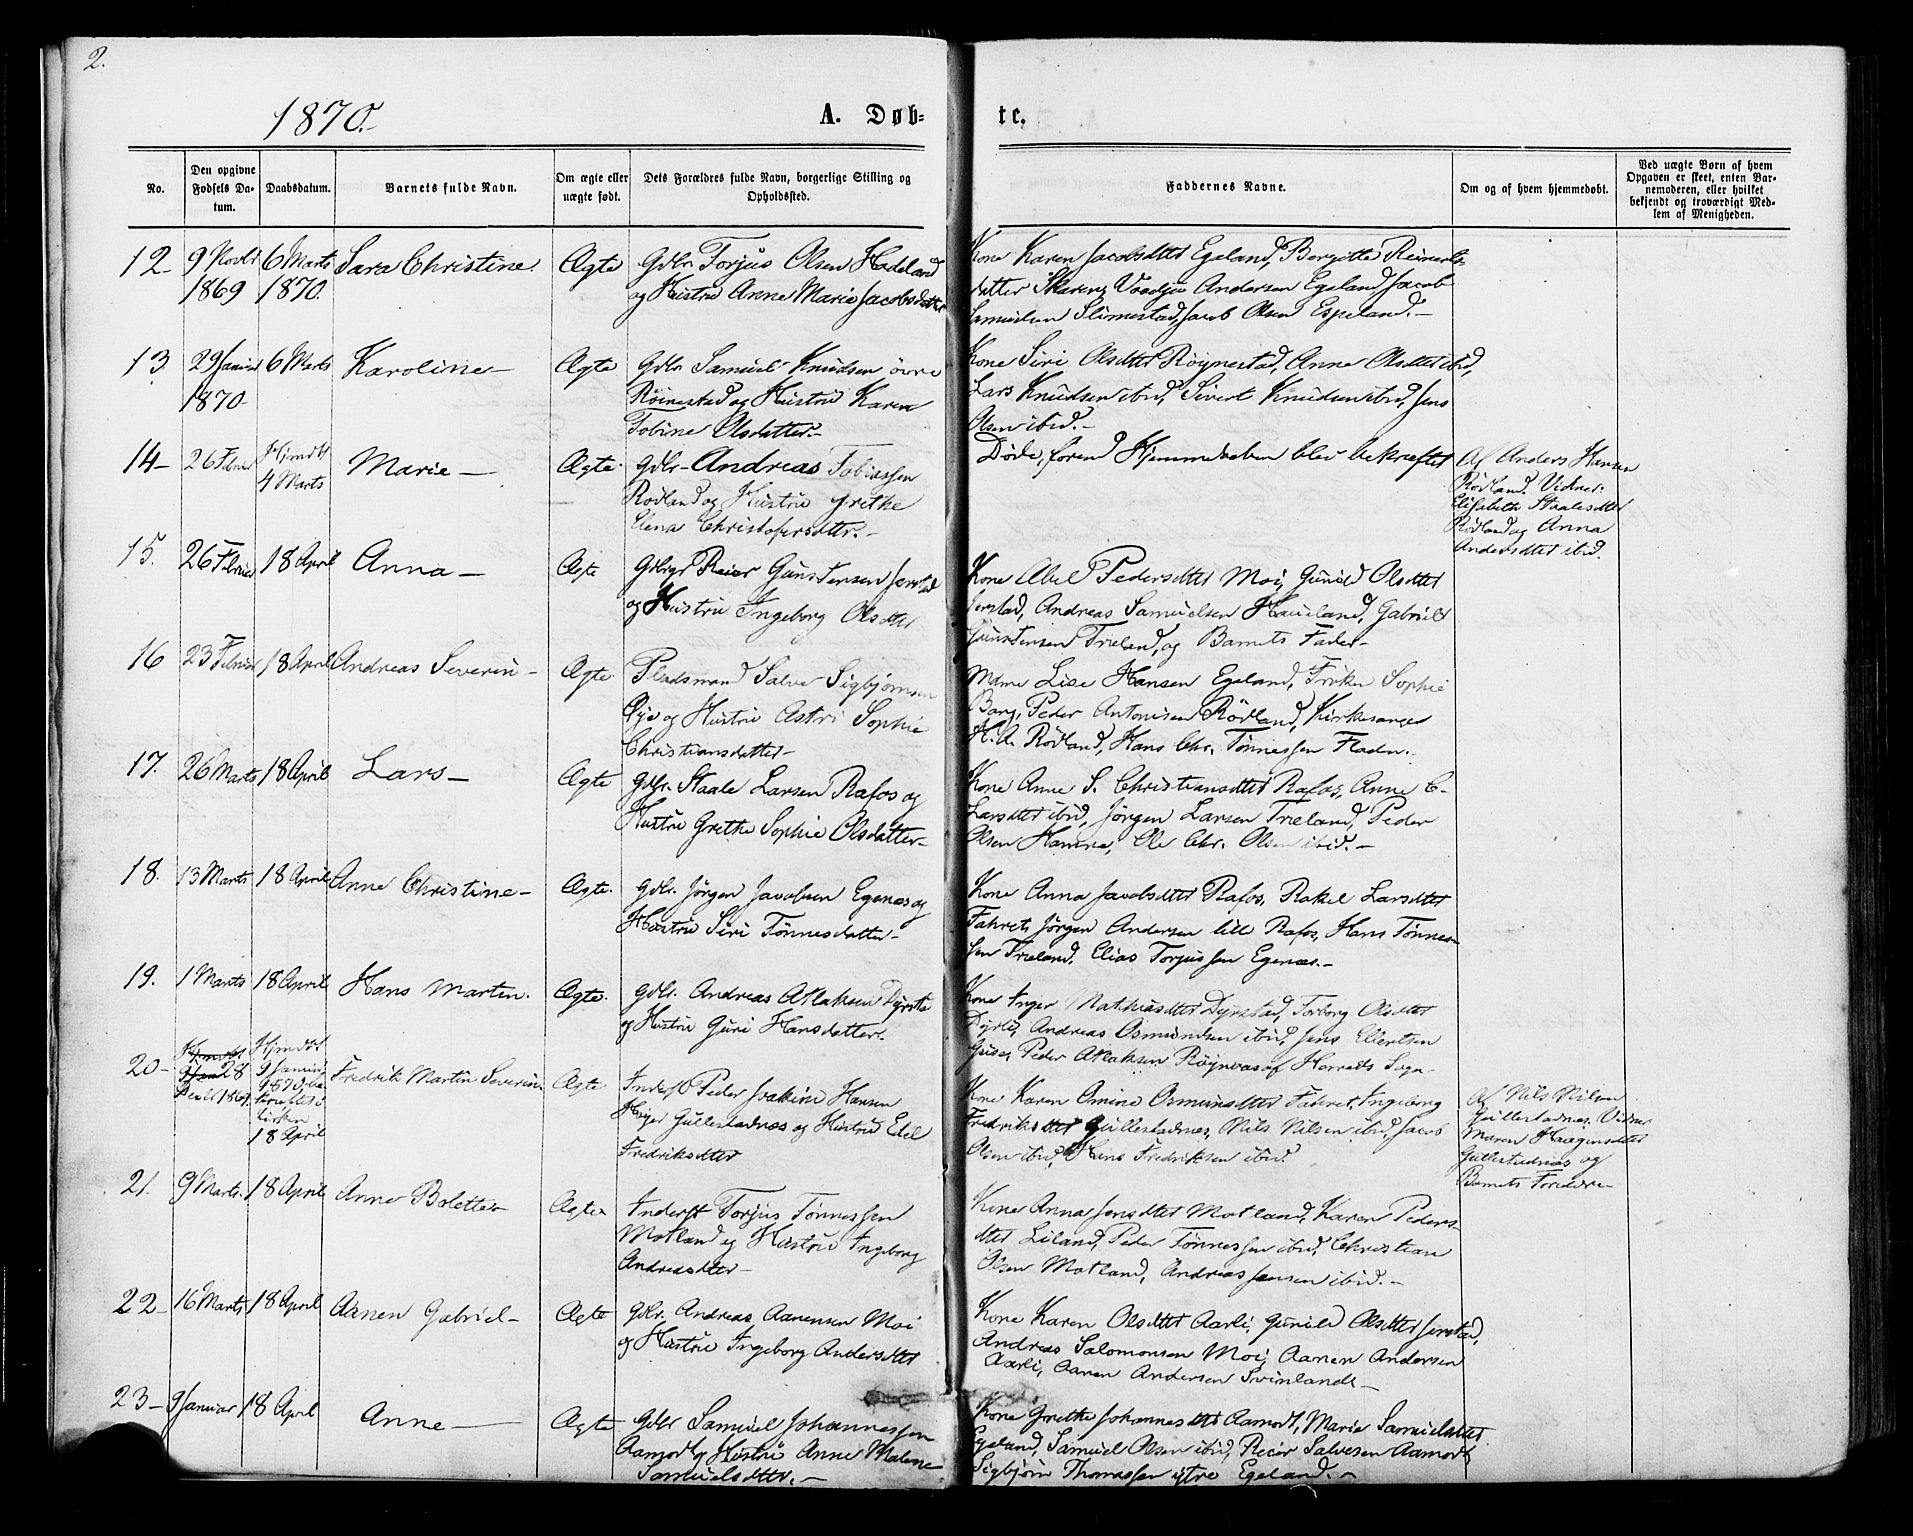 2.
1870.
A. Døb-
te.
No.
Den opgivne Fødsels Da-
tum.
Daabsdatum.
Barnets fulde Navn.
Om ægte eller
uægte født.
Dets Forældres fulde Navn, borgerlige Stilling og
Opholdssted.
Faddernes Navne.
Om og af hvem hjemmedøbt.
Ved uægte Børn af hvem
Opgaven er skeet, enten Bar-
nemoderen, eller hvilket
bekjendt og troværdigt Med-
lem af Menigheden.
12 9 Novbr 6 Marts Sara Christine Ægte Gdbr. Torjus Olsen Hadeland
1869 1870. og Hustru Anne Marie Jacobsdatter
Kone Karen Jacobsdtter Egeland, Borgitte Reinerts-
datter Andersen Egeland Jacob
Samuelsen Slimestad, Jacob Olsen Espeland.
13. 29 Januar 6 Marts Karoline Ægte Gdbr Samuel Knudsen övre
1870 Röinestad og Hustru Karen
Tobine Olsdatter.
Kone Siri Olsdtter Røynestad, Anne Olsdtter ibid,
Lars Knudsen ibid, Sivert Knudsen ibid, Jens
Olsen ibid.
14 26 Febr Hjmdbt Marie Ægte Gdbr Andreas Tobiassen
4 Marts Rödland og Hustru Grethe
Elena Christofersdtter.
Døde, foren Hjemmedaaben blev bekræftet
Af Anders Hansen
Rödland. Vidner:
Elisabeth Staalesdtter
Rödland og Anna
Andersdtter ibid.
15. 26 Februar 18 April Anna Ægte Gdbr Reier Gunstensen Jerstad
og Hustru Ingeborg Olsdtter
Kone Abel Pedersdtter Moi, Gunild Olsdtter
Jerstad, Andreas Samuelsen Haueland, Gabriel
Gunstensen Trieland, og Barnets Fader
16 23 Februar 18 April Andreas Severin Ægte Pladsmand Salve Sigbjørnsen
Øye og Hustru Astri Sophie
Christiansdatter
Mdme Lise Hansen Egeland, Frøken Sophie
Borg, Peder Antonisen Rödland, Kirkesanger
H. A. Rödland, Hans Chr. Tönnessen Fladen.
17. 26 Marts 18 April Lars Ægte Gdbr. Staale Larsen Rafos og
Hustru Grethe Sophie Olsdatter
Kone Anne S. Christiansdtter Rafos, Anne C.
Larsdtter ibid, Jörgen Larsen Trieland, Peder
Olsen Hamre, Ole Chr. Olsen ibid.
18. 13 Marts 18 April Anne Christine Ægte. Gdbr. Jörgen Jacobsen Egenæs og
Hustru Siri Tönnesdatter
Kone Anna Jacobsdtter Rafos, Rakel Larsdtter
Fahret, Jörgen Andersen lille Rafos, Hans Tönnes-
sen Trieland, Elias Torjussen Egenæs.
19. 1 Marts 18 April Hans Martin. Ægte. Gdbr. Andreas Aslaksen Dyrsta
og Hustru Guri Hansdatter.
Kone Inger Mathiasdtter Dyrstad, Torborg Olsdtter
Dyrli, Andreas Osmundsen ibid, Jens Ellertsen
Peder Aslaksen Røynaas af Herreds Sogn
20 28 Hjmdbt Fredrik Martin Severin Ægte Inderst Peder Joakim Hansen
Decbr 1869. 9 Januar 1870 be- Høyer Gullestadnæs og Hustru Edel
kræftet i Fredriksdtter
kirken
18 April
Kone Karen Amine Osmundsdtter Fahret, Ingeborg
Fredriksdtter Gullestadnæs, Nils Nilsen ibid, Jacob
Olsen ibid, Hans Fredriksen ibid.
Af Nils Nilsen
Gullestadnæs, Vidner
Maren Haagensdtter
Gullestadnæs og
Barnets Forældre
21. 9 Marts 18 April Anne Bolette Ægte Inderst Torjus Tönnessen
Motland og Hustru Ingeborg
Andreasdtter
Kone Anna Jensdtter Motland, Karen Peders-
dtter Liland, Peder Tönnessen ibid, Christian
Olsen Motland, Andreas Jensen ibid.
22 16 Marts 18 April Aanen Gabriel Ægte Gdbr. Andreas Aanensen Moi
og Hustru Ingeborg Andersdtter
Kone Karen Olsdtter Aarli, Gunild Olsdtter Jerstad,
Andreas Salomonsen Moi, Aanen Andersen
Aarli, Aanen Andersen Svinland
23 9 Januar 18 April Anne Ægte Gdbr Samuel Johannessen
Aamodt og Hustru Anne Malene
Samuelsdtter.
Kone Grethe Johannesdtter Aamodt, Marie Samuelsdtter
Egeland, Samuel Olsen ibid, Reier Salvesen Aamodt,
Sigbjörn Thomassen ytre Egeland.